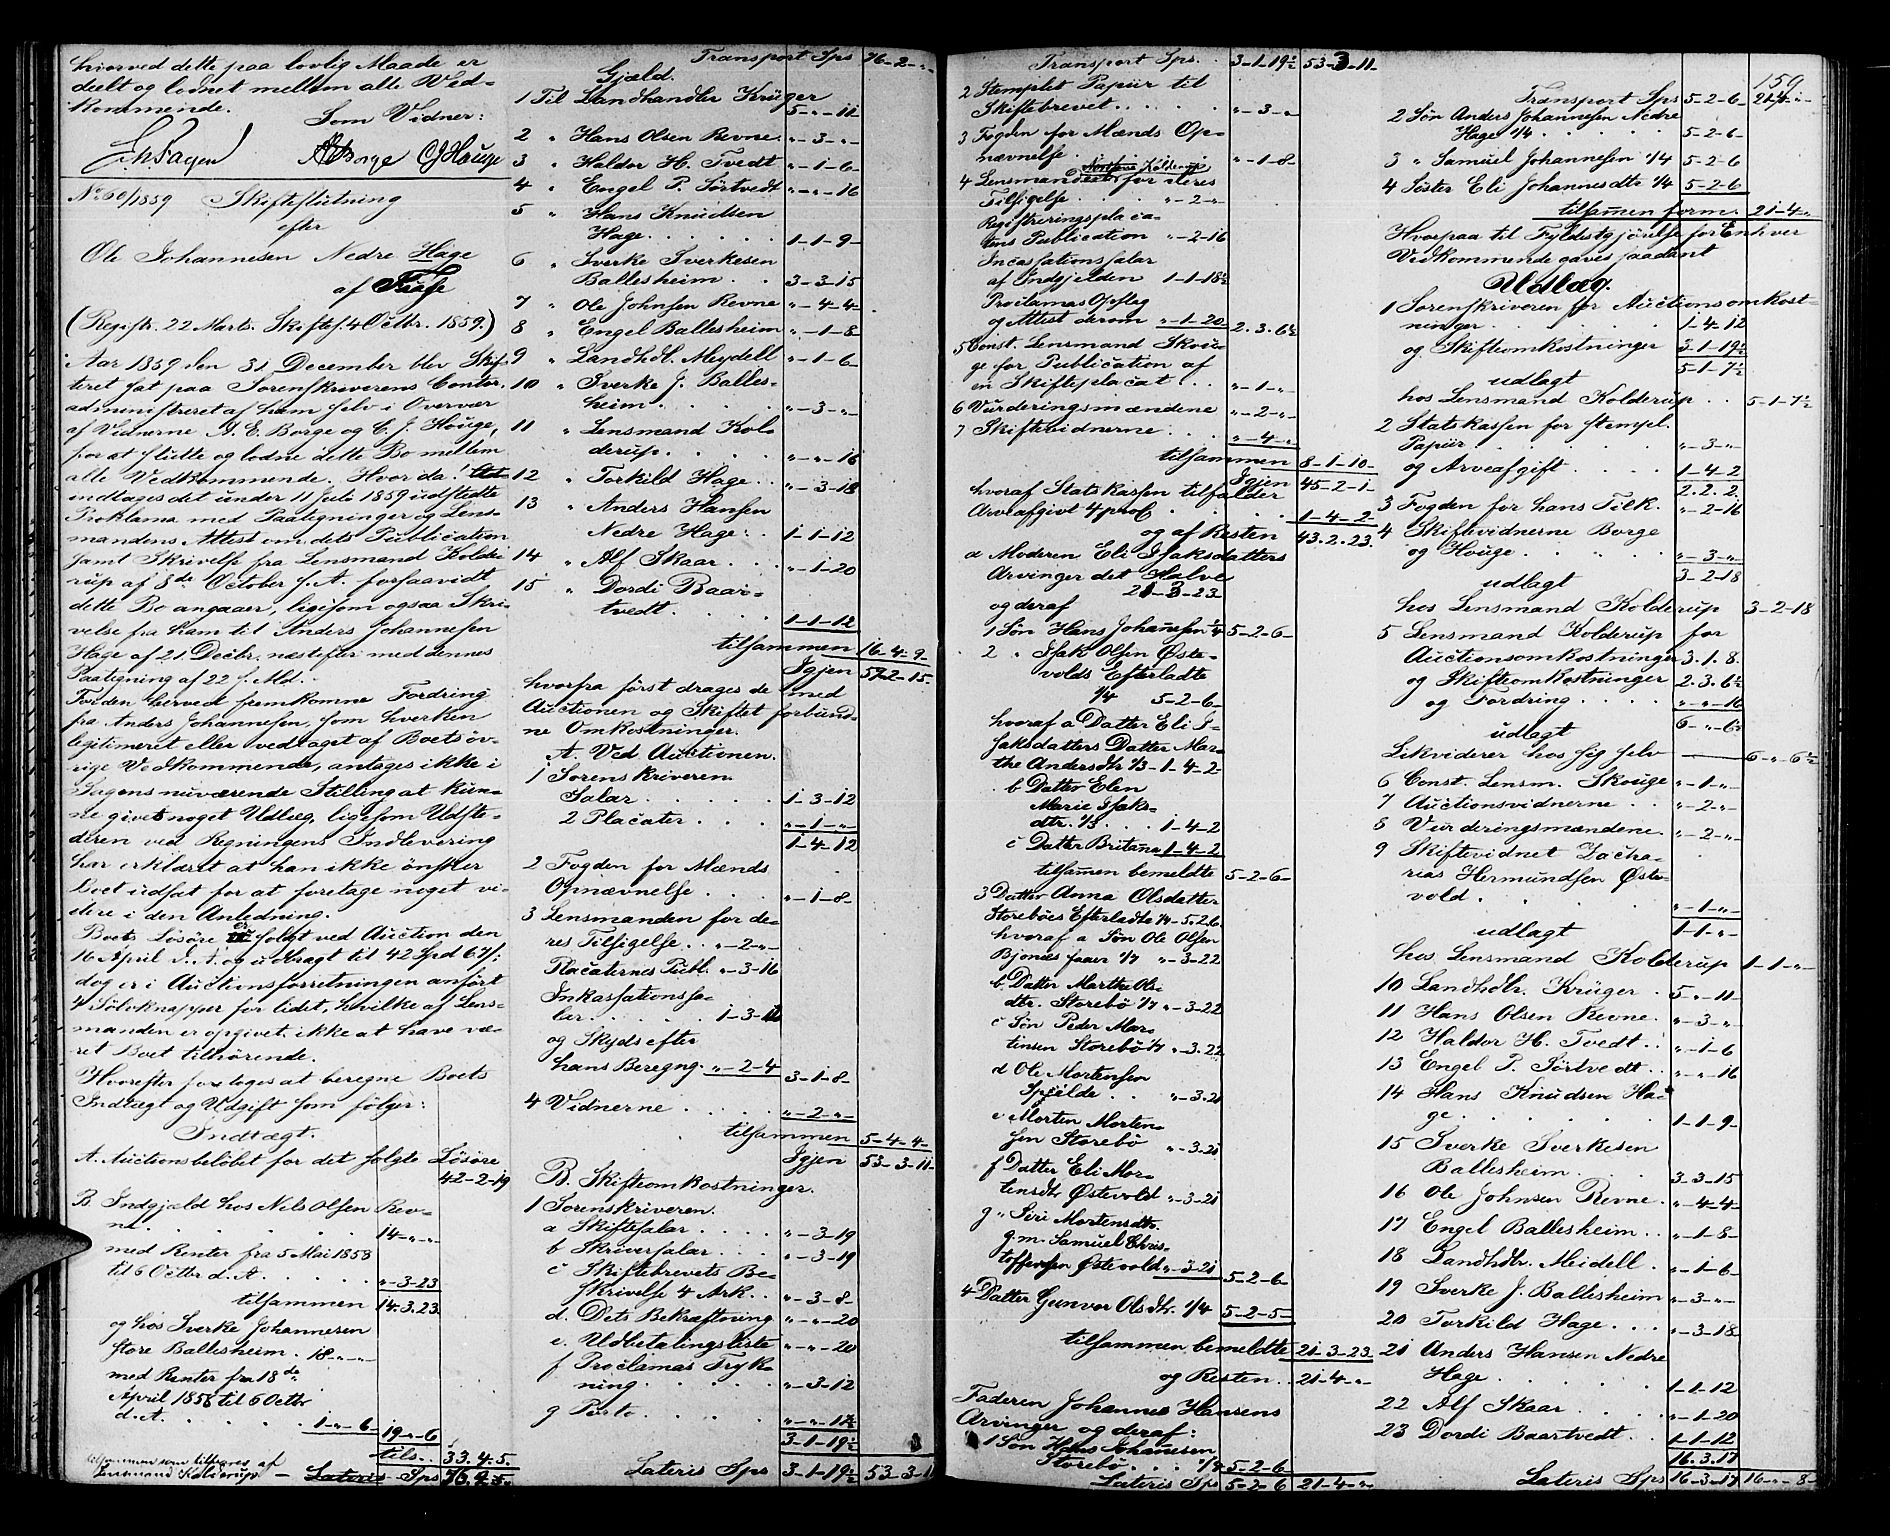 hvorved dette paa lovlig Maade er
deelt og lodnet mellem alle Ved-
kommende.
Som Vidner:
AEBorge CJHouge
No 60/1859 Skifteslutning
efter
Ole Johannesen Nedre Hage
af
(Registr. 22 Marts. Skiftes. 4 Octbr. 1859.)
Aar 1859 den 31 December blev Skif-
teret sat paa Sorenskriverens Contor,
administreret af ham selv i Overvær
af Vidnerne A. E. Borge og C. J. Houge,
for at slutte og lodne dette Bo mellem
alle Vedkommende. Hvorda:
indtages det under 11 Juli 1859 udstedte
Proklama med Paategninger og Lens-
mandens Attest om dets Publication
samt Skrivelse fra Lensmand Kolde-
rup af 8de October s. A. forsaavidt
dette Bo angaaer, ligesom ogsaa Skri-
velse fra ham til Anders Johannesen
Hage af 21 Decbr. næstefter med dennes
Paategning af 22 s. Md.
Foiden herved fremkomne Fordring
fra Anders Johannesen, som hverken
legitimeret eller vedtaget af Boets øv-
rige Vedkommende, antages ikke i
Sagens nuværende Stilling at kun-
ne givet noget Udlæg, ligesom Udste-
deren ved Regningens Indlevering
har erklæret at han ikke ønsker
Boet udsat for at foretage noget vi-
dere i den Anledning.
Boets Løsøre er solgt ved Auction den
16 April d. A. og udbragt til 42 Spd 67 s:
dog er i Auctionsforretningen anført
4 Sølvknapper for lidet, hvilke af Lens-
manden er opgivet ikke at have væ-
ret Boet tilhørende.
Hvorefter foretoges at beregne Boets
Indtægt og Udgift som følger:
Indtægt.
A. Auctionsbeløbet for det solgte Løsøre
42-2-19
B. Indgjæld hos Nils Olsen Rev-
ne . . . 14-"-"
med Renter fra 5 Mai 1858
til 6 Octbr d. A. . . . "-3-23
tilsammen 14.3.23.
og hos Sverke Johannesen
store Ballesheim. 18-"-"
med Renter fra 18de
April 1858 til 6 Octbr
d. A. . . . 1-"-6 19-"-6
tils. . 33.4.5.
tilsammen som tilsvares af
Lensmand Kolderup. — Lateris Sps 76.2.

Transport Sps 76-2-"-
Gjæld.
1 Til Landhandler Krüger
5-"-11
2 " Hans Olsen Revne. "-3-"
3 " Haldor H. Tvedt "-1-6
4 " Engel P. Sørtvedt "-"-16
5 " Hans Knudsen
Hage. . . . 1-1-9-
6 " Sverke Sverkesen
Ballesheim . . 3-3-15
7 " Ole Johnsen Revne "-4-4-
8 " Engel Ballesheim "-1-8
9 " Landhdl. Meydell "-1-6
10 " Sverke J. Balles-
heim. . . . "-3-"-
11 " Lensmand Kol-
derup. . . . "-"-16
12 " Torkild Hage. . "-3-18
13 " Anders Hansen
Nedre Hage: . 1-1-12
14 " Alf Skaar. . . "-1-20
15 " Dordi Baar-
tvedt . . . 1-1-12
tilsammen 16-4-9-
Igjen 59-2-15.
hvorfra først drages de med
Auctionen og Skiftet forbund-
ne Omkostninger.
A. Ved Auctionen.
1 Sorenskriveren
Salar. . . . 1-3-12
2 Placater. . . "-1-"-
1-4-12
2 Fogden for Mænds
Opnævnelse. . . "-1-8-
3 Lensmanden for de-
res Tilsigelse. . "-2-"-
Placaternes Publ. "-3-16
Inkassationssa-
lær. . . . 1-3-
og Skyds efter
hans Beregng. "-2-4 3-1-8-
4 Vidnerne . . . "-2-"-
tilsammen 5-4-4-
Igjen 53-3-11-
B. Skifteomkostninger.
1 Sorenskriveren.
a Skiftesalar. . . "-3-19
b Skriversalar. . . "-3-19
c Skiftebrevets Be-
skrivelse 4 Ark. . "-3-8-
d. Dets Bekræftning "-"-20
e. Udbetalingsliste "-"-20
f Proclamas Tryk-
ning. . . . "-3-12
g Porto . . . "-"-
3-1-19½
Lateris Sps 3-1-19½ 53-3-11

Transport Sps. . 3-1-19½ 53-3-11-
2 Stemplet Papiir til
Skiftebrevet. . . . "-3-"
3 Fogden for Mænds Op-
nævnelse. . . "-1-8
4 Lensmand Kolderup for deres
Tilsigelse. . "-2-"
Registreringsplaca-
tens Publication "-2-16
Incassationssalar
af Indgjelden 1-1-18½
Proclamas Opslag
og Attest derom "-1-20 2.3.6½
5 Const. Lensmand Skou-
ge for Publication af
en Skifteplacat. . "-1-"
6 Vurderingsmændene "-2-"-
7 Skiftevidnerne. . . "-4-"
tilsammen 8-1-10-
Igjen 45-2-1-
hvoraf Statskassen tilfalder
Arveafgivt 4 proC. . . . 1-4-2-
og af Resten 43.2.23.
a Moderen Eli Isaksdatters
Arvinger det Halve
21-3-23-
og deraf
1 Søn Hans Johannesen ¼ 5-2-6-
2 " Isak Olsen Øste-
volds Efterladte
¼ 5-2-6-
hvoraf a Datter Eli I-
saksdatters Datter Mar-
the Andersdtr ⅓-1-4-2-
b Datter Elen
Marie Isaks-
dtr. ⅓. . . 1-4-2
c Datter Britana 1-4-2
tilsammen bemeldte 5-2-6-
3 Datter Anna Olsdatter
Storebøes Efterladte ¼-5.26.
hvoraf a Søn Ole Olsen
Bjonæs faaer 1/7 "-3-22
b Datter Marthe Ols-
dtr. Storebø 1/7 "-3-22
c Søn Peder Mar-
tinsen Storebø 1/7 "-3.22
d Ole Mortensen
Spilde. . . "-3.21
e Morten Morten-
sen Storebø "-3-21
f Datter Eli Mor-
tensdtr Østevold "-3-21
g " Siri Mortensdtr.
g. m. Samuel Chris-
toffersen Østevold "-3-21 5-2-6-
4 Datter Gunvor Olsdtr. ¼ 5-2-5-
tilsammen bemeldte 21-3-23-
og Resten. . 21-4-"-
Faderen Johannes Hansens
Arvinger og deraf:
1 Søn Hans Johannesen
Storebø. . . ¼ 5-2-6
Lateris Sps 5-2-6 21-4-"-

159
Transport Sps 5-2-6- 21-4-"-
2 Søn Anders Johannesen Nedre
Hage ¼ . . . 5-2-6-
3 " Samuel Johannesen ¼ 5-2-6
4 Søster Eli Johannesdtr ¼ 5-2-6
tilsammen form. 21-4-"
Hvorpaa til Fyldestgjørelse for Enhver
Vedkommende gaves saadant
Udlæg.
1 Sorenskriveren for Auctionsomkost-
ninger. . . . 1-4-12
og Skifteomkostninger 3-1-19½
5-1-7½
udlagt
hos Lensmand Kolderup . . 5-1-7½
2 Statskassen for stempl.
Papiir . . . "-3-"
og Arveafgift. . . 1-4-2
2.2.2.
3 Fogden for hans Tilk. "-2-16
4 Skiftevidnerne Borge
og Houge. . . . "-3-"-
3-2-18
udlagt
hos Lensmand Kolderup 3-2-18
5 Lensmand Kolderup for
Auctionsomkostninger 3.1.8.
og Skifteomkostninger 2.3.6½
og Fordring. . . . "-"-16
6-"-6½
udlagt
Likviderer hos sig selv — 6-"-6½
6 Const. Lensm. Skouge "-1-"-
7 Auctionsvidnerne . . "-2-"-
8 Vurderingsmændene "-2-"-
9 Skiftevidnet Zacha-
rias Hermundsen Øste-
vold. . . . "-1-"-
1-1-"-
udlagt
hos Lensmand Kolderup 1-1-"-
10 Landhdlr. Krüger . 5-"-11-
11 Hans Olsen Revne. "-3-"-
12 Haldor H. Tvedt. . "-1-6
13 Engel P. Sørtvedt. . "-"-16
14 Hans Knudsen Ha-
ge. . . . 1-1-9-
15 Sverke Sverkesen
Ballesheim. . . 3-3-15
16 Ole Johnsen Revne. "-4-4-
17 Engel Ballesheim. . "-1-8-
18 Landhdlr. Meidell. . "-1-6-
19 Sverke J. Ballesheim "-3-"-
20 Torkild Hage. . . "-3-18
21 Anders Hansen Nedre
Hage. . . . 1-1-12
22 Alf Skaar. . . "-1-20
23 Dordi Baartvedt. . 1-1-12
16.3.17
Lateris Sps 16-3-17 16-"-8-